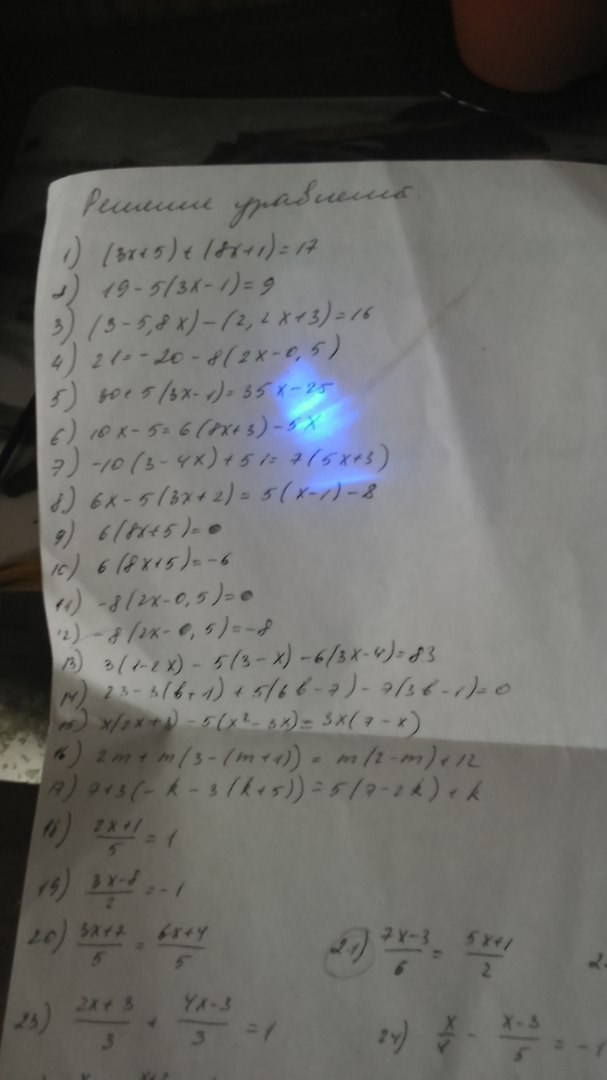 Решение уравнений.
1) (3x+5)+(8x+1)=17
2) 19-5(3x-1)=9
3) (3-5,8x)-(2,2x+3)=16
4) 21=-20-8(2x-0,5)
5) 30+5(3x-1)=35x-25
6) 10x-5=6(8x+3)-5x
7) -10(3-4x)+51=7(5x+3)
8) 6x-5(3x+2)=5(x-1)-8
9) 6(8x+5)=0
10) 6(8x+5)=-6
11) -8(2x-0,5)=0
12) -8(2x-0,5)=-8
13) 3(1-2x)-5(3-x)-6(3x-4)=83
14) 23-3(b+1)+5(6b-7)-7(3b-1)=0
15) x(2x+3)-5(x²-3x)=3x(7-x)
16) 2m+m(3-(m+1))=m(2-m)+12
17) 7+3(-k-3(k+5))=5(7-2k)+k
18) (2x+1)/5=1
19) (3x-8)/2=-1
20) (3x+7)/5=(6x+4)/5 21) (7x-3)/6=(5x+1)/2
23) (2x+3)/3+(4x-3)/3=1 24) x/4-(x-3)/5=-1